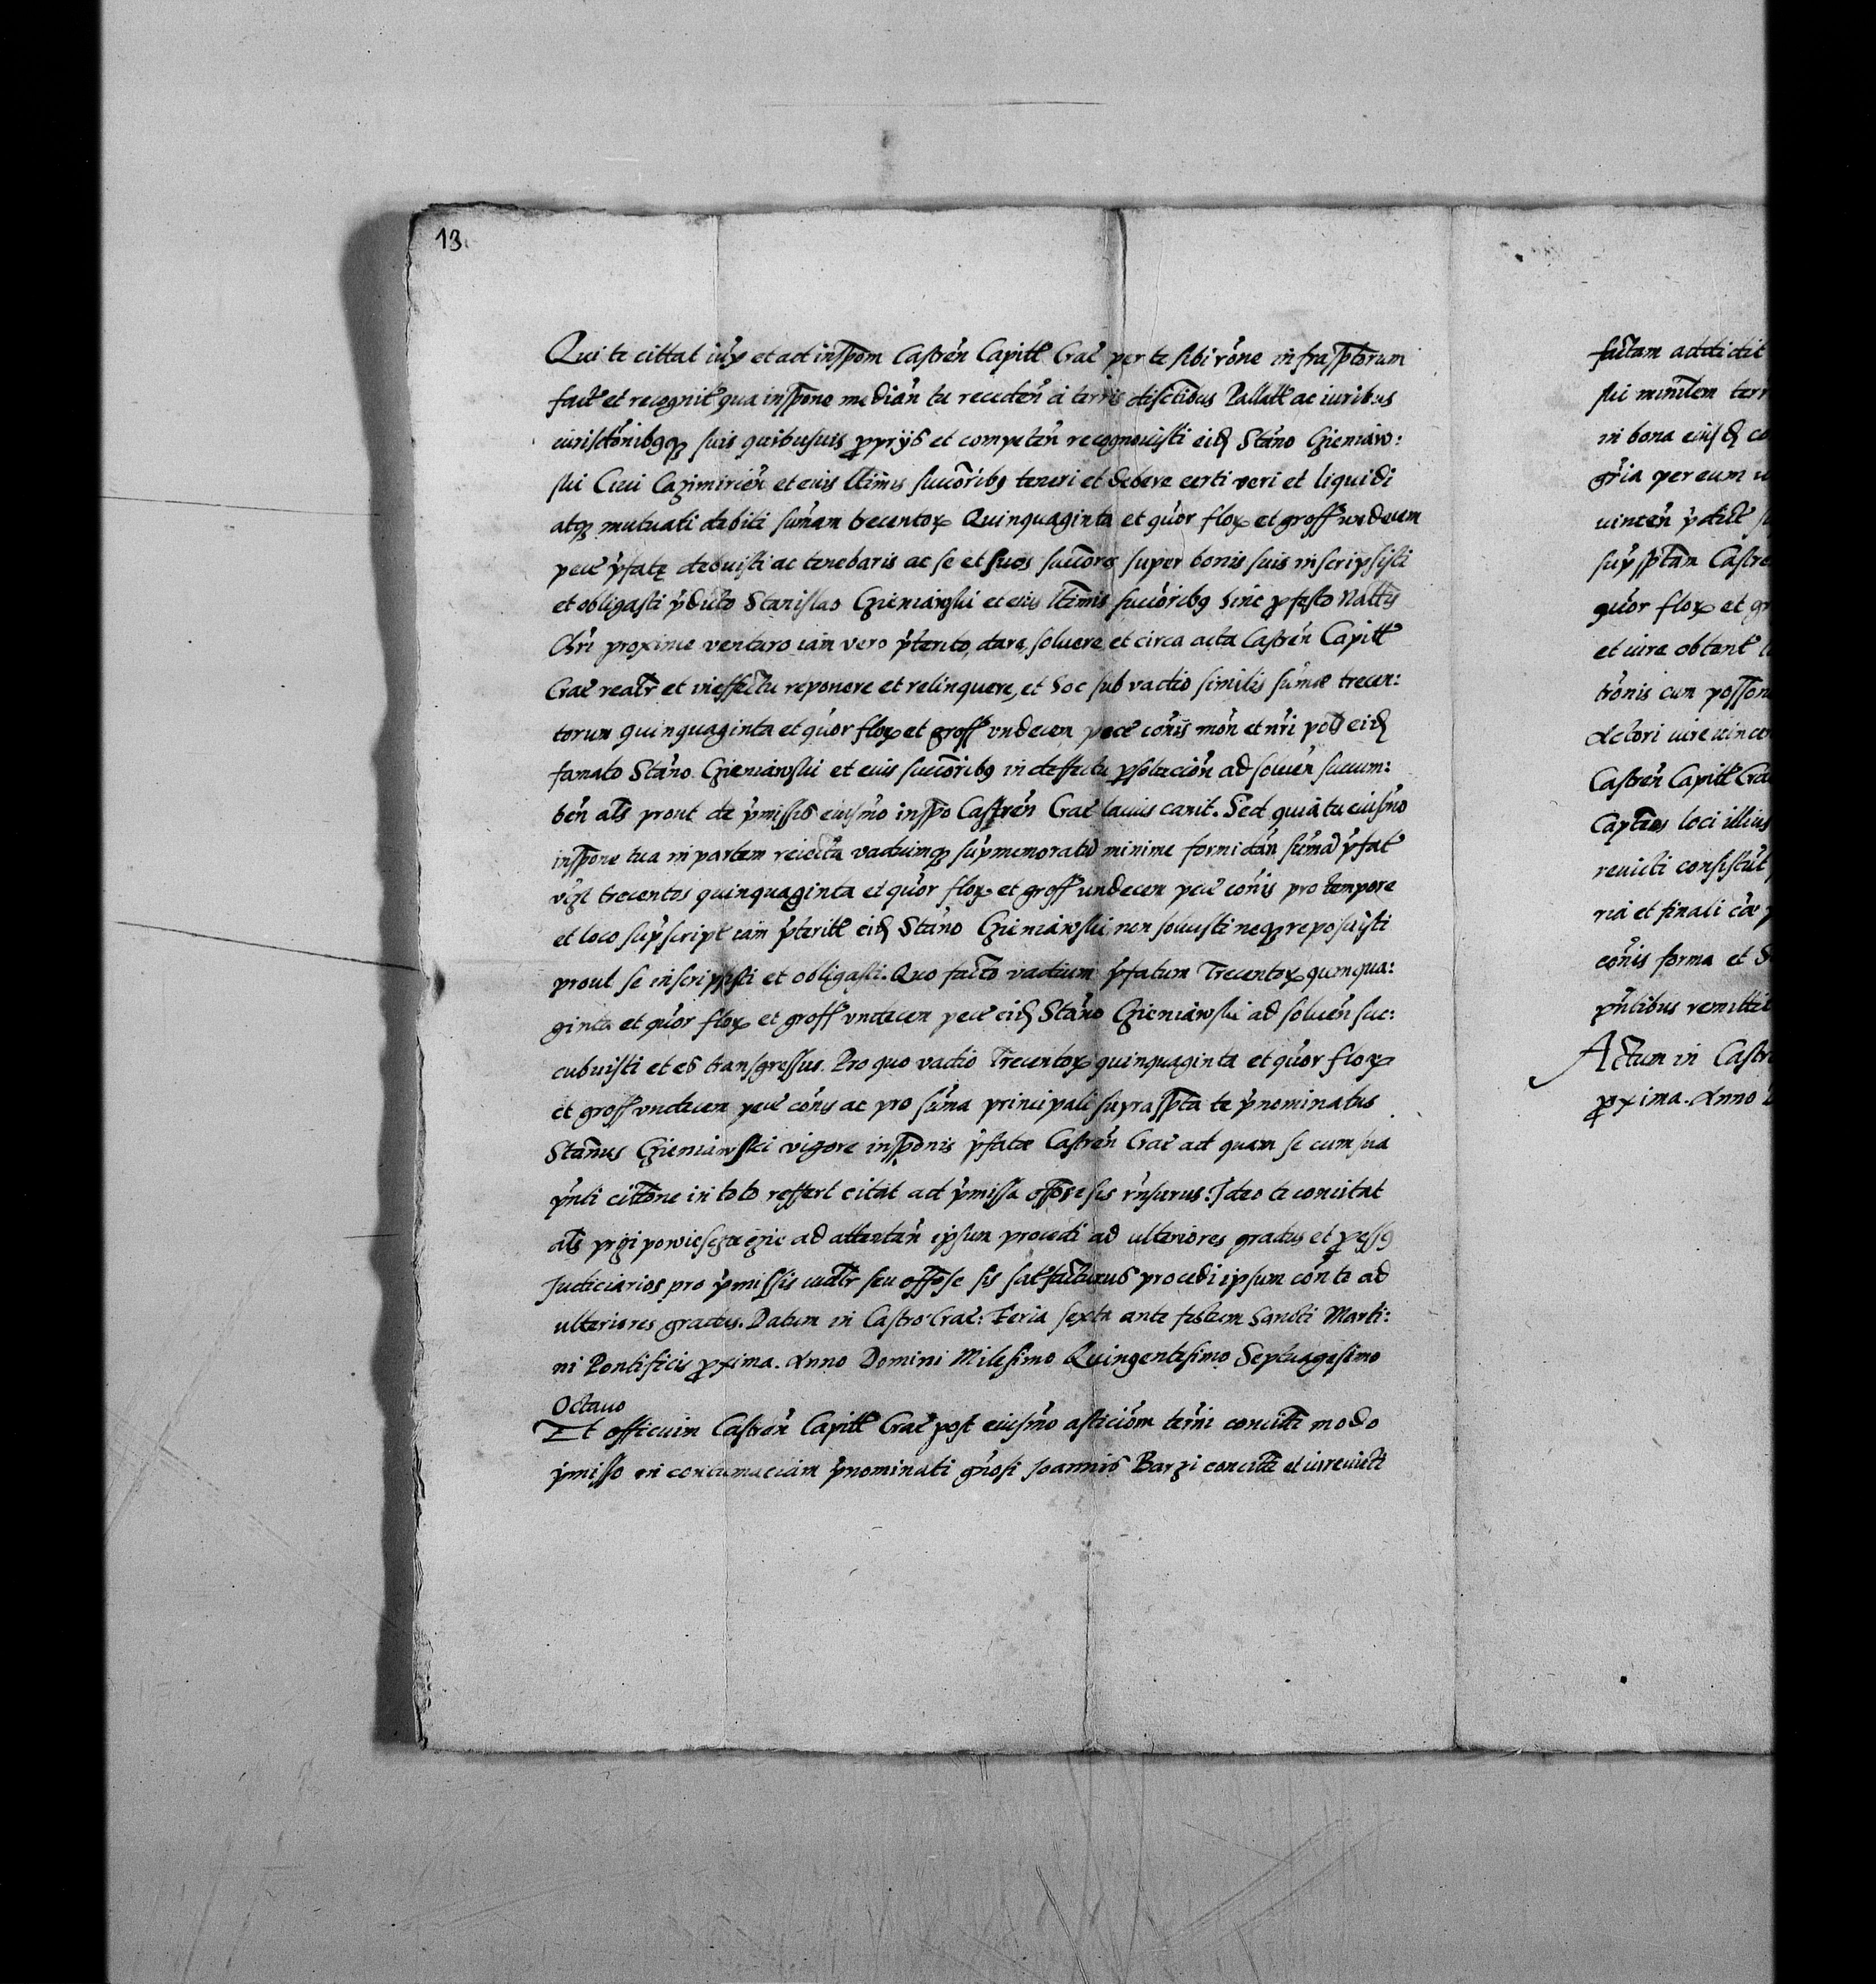 13.
Qui te cittat iux et ad inspom Castren Capitt Crac per te sibi rone infrasptorum
fact et recognit qua inspone median tu receden a terris districtibus Pallatt ac iuribus
iurisdtonibqz suis quibusuis pprijs et competen recognouisti eid Stano Gieniaw:
ski Ciui Cazimirien et eius lltimis succoribq teneri et debere certi veri et liquidi
atqz mutuati debiti sumam trecentox Quinquaginta et quor flox et groff undecem
pecc pfatę debuisti ac tenebaris ac se et suos succores super bonis suis inscripsisti
et obligasti pducto Stanislao Gieniawski et eius ltimis succoribq hinc p festo Nattis
Chri proxime venturo iam vero pterito, dare, soluere, et circa acta Castren Capitt
Crac realr et in effectu reponere et relinquere, et hoc sub vadio similis sumæ trecen:
torum quinquaginta et quor flox et groff vndecem pecc conis mon et nri pol eid
famato Stano Gieniawski et eius succoribq in deffectu psolucion ad soluen sucum:
ben als prout de pmissis eiusmo inspo Castren Crac lacius canit. Sed quia tu eiusmo
inspone tua in partem reiecta vadiumqz supmemoratu minime formidan sumã pfat
vigt trecentos quinquaginta et quor flox et groff undecem pecc conis pro tempore
et loco supscript iam pteritt eid Stano Gieniawski non soluisti neqz reposuisti
prout se inscripsisti et obligasti. Quo facto vadium pfatum Trecentox quinqua:
ginta et quor flox et groff vndecem pecc eid Stano Gieniawski ad soluen suc:
cubuisti et es transgressus. Pro quo vadio Trecentox quinquaginta et quor flox
et groff vndecem pecc conis ac pro suma principali supraspta te pnominatus
Stanus Gieniawski vigore insponis pfatæ Castren Crac ad quam se cum sua
pnti cittone in toto reffert citat ad pmissa offose sis rnsurus. Ideo te concitat
als przipowiesczą ad attentan ipsum procedi ad ulteriores gradus et pcessq
Judiciarios pro pmissis iudlr seu offose sis satfacturus procedi ipsum con te ad
ulteriores gradus. Datum in Castro Crac: Feria sexta ante festum Sancti Marti:
ni Pontificis pxima. Anno Domini Milesimo Quingentesimo Septuagesimo
Octauo
Et officium Castren Capitt Crac post eiusmo asticiom termi concitti modo
pmisso in contumaciam pnominati gnosi Joannis Barzi concitti et iurreuicti
factam addidit
ski minrlem terr
in bona eiusd co
gria per eum
uincen pdict
supsptam Castre
quor flox et gr
et iure obtent
tronis cum posson
Actori iure uincen
Castren Capitt Cra
Capteos loci illius
reuicti consistut
ria et finali
conis forma et
pntibus remittit
Actum in Castr
pxima. Anno